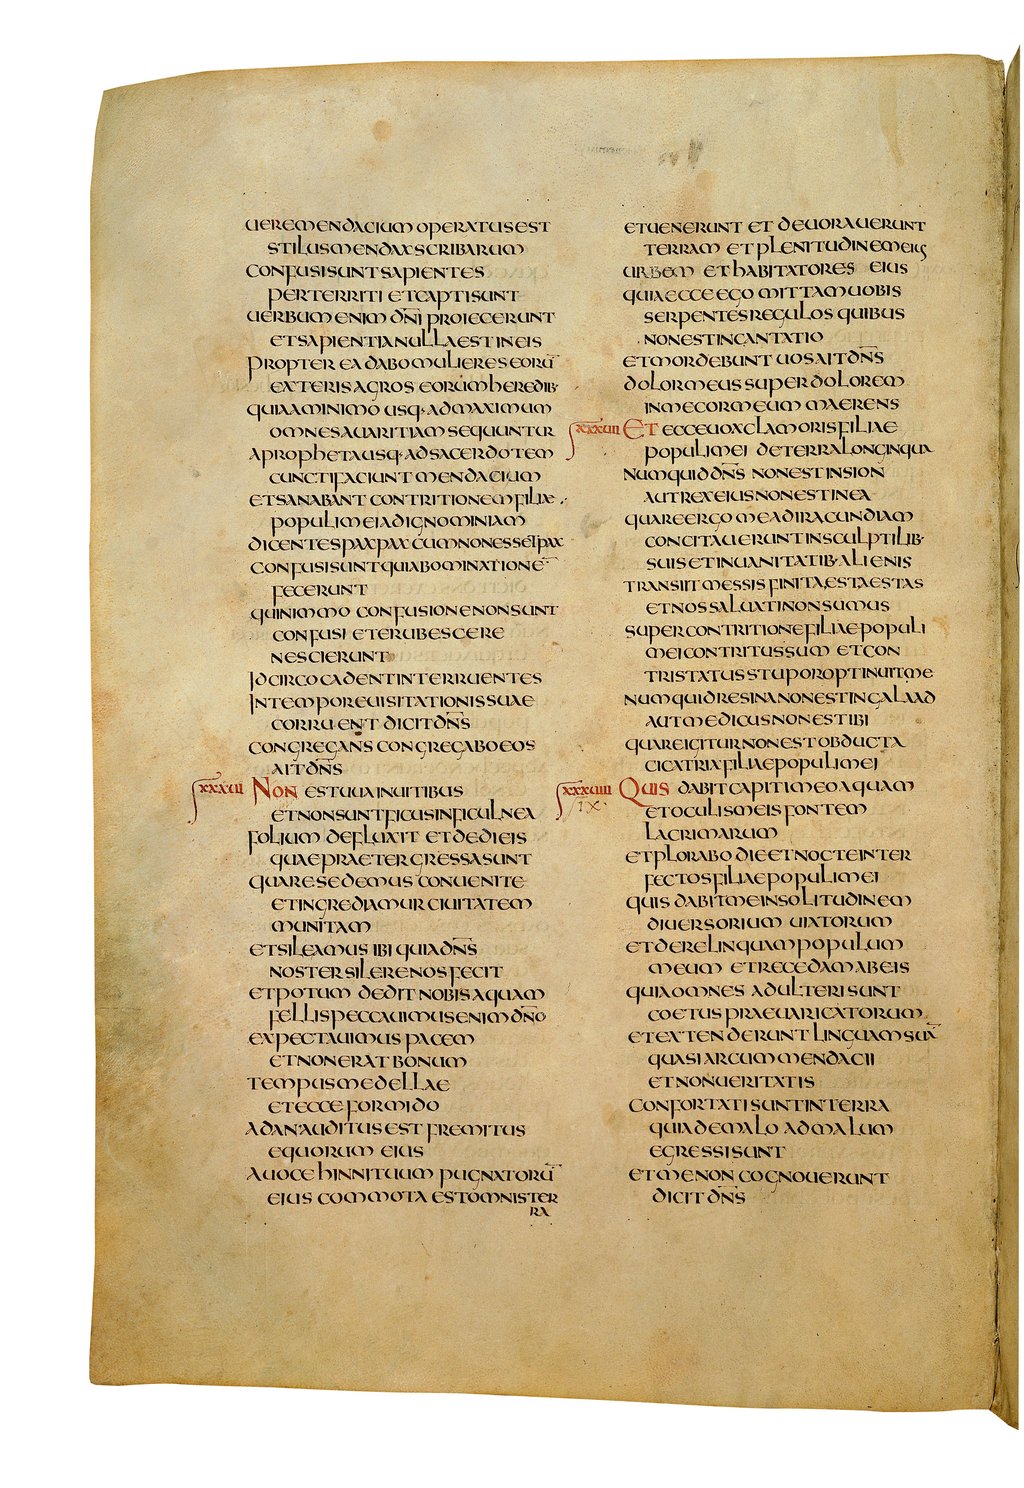 UEREMENDACIUM OPERATUSEST
STILUSMENDAXSCRIBARUM
CONFUSISUNTSAPIENTES
PERTERRITI ETCAPTISUNT
UERBUMENIM DN̄I PROIECERUNT
ETSAPIENTIANULLAESTINEIS
PROPTER EADABOMULIERESEORŪ
EXTERISAGROS EORUMHEREDIB·
QUIAAMINIMO USQ·ADMAXIMUM
OMNESAUARITIAMSEQUUNTUR
APROPHETAUSQ·ADSACERDOTEM
CUNCTIFACIUNTMENDACIUM
ETSANABANT CONTRITIONEMFILIAE
POPULIMEIADIGNOMINIAM
DICENTESPAXPAX CUMNONESSETPAX
CONFUSISUNTQUIABOMINATIONĒ
FECERUNT
QUINIMMO CONFUSIONENONSUNT
CONFUSI ETERUBESCERE
NESCIERUNT
IDCIRCOCADENTINTERRUENTES
INTEMPOREUISITATIONISSUAE
CORRUENT DICITDN̄S
CONGREGANS CONGREGABOEOS
AITDN̄S
XXXVII NON ESTUUAINUITIBUS
ETNONSUNTFICUSINFICULNEA
FOLIUM DEFLUXIT ETDEDIEIS
QUAEPRAETERGRESSASUNT
QUARESEDEMUS CONUENITE
ETINGREDIAMUR CIUITATEM
MUNITAM
ETSILEAMUS IBI QUIADN̄S
NOSTERSILERENOSFECIT
ETPOTUM DEDITNOBISAQUAM
FELLISPECCAUIMUSENIMDN̄O
EXPECTAUIMUSPACEM
ETNONERATBONUM
TEMPUSMEDELLAE
ETECCEFORMIDO
ADANAUDITUSEST FREMITUS
EQUORUM EIUS
AUOCEHINNITUUM PUGNATORŪ
EIUS COMMOTA ESTOMNISTER
RA
ETUENERUNT ET DEUORAUERUNT
TERRAM ETPLENITUDINEMEIUS
URBEM ETHABITATORES EIUS
QUIAECCEEGO MITTAMUOBIS
SERPENTESREGULOS QUIBUS
NONESTINCANTATIO
ETMORDEBUNT UOSAITDN̄S
DOLORMEUSSUPERDOLOREM
INMECORMEUM MAERENS
XXXVIII ET ECCEUOXCLAMORISFILIAE
POPULIMEI DETERRALONGINQUA
NUMQUIDDN̄S NONESTINSION
AUTREXEIUSNONESTINEA
QUAREERGO MEADIRACUNDIAM
CONCITAUERUNTINSCULPTILIB·
SUISETINUANITATIB·ALIENIS
TRANSIITMESSISFINITAESTAESTAS
ETNOSSALUATINONSUMUS
SUPERCONTRITIONEFILIAEPOPULI
MEICONTRITUSSUM ETCON
TRISTATUSSTUPOROPTINUITME
NUMQUIDRESINANONESTINGALAAD
AUTMEDICUSNONESTIBI
QUAREIGITURNONESTOBDUCTA
CICATRIXFILIAEPOPULIMEI
XXXVIIII QUIS DABITCAPITIMEOAQUAM
IX· ETOCULISMEISFONTEM
LACRIMARUM
ETPLORABO DIEETNOCTEINTER
FECTOSFILIAEPOPULIMEI
QUIS DABITMEINSOLITUDINEM
DIUERSORIUM UIATORUM
ETDERELINQUAMPOPULUM
MEUM ETRECEDAMABEIS
QUIAOMNES ADULTERISUNT
COETUS PRAEUARICATORUM
ETEXTENDERUNT LINGUAMSUĀ
QUASIARCUMMENDACII
ETNONUERITATIS
CONFORTATISUNTINTERRA
QUIADEMALO ADMALUM
EGRESSISUNT
ETMENON COGNOUERUNT
DICITDN̄S